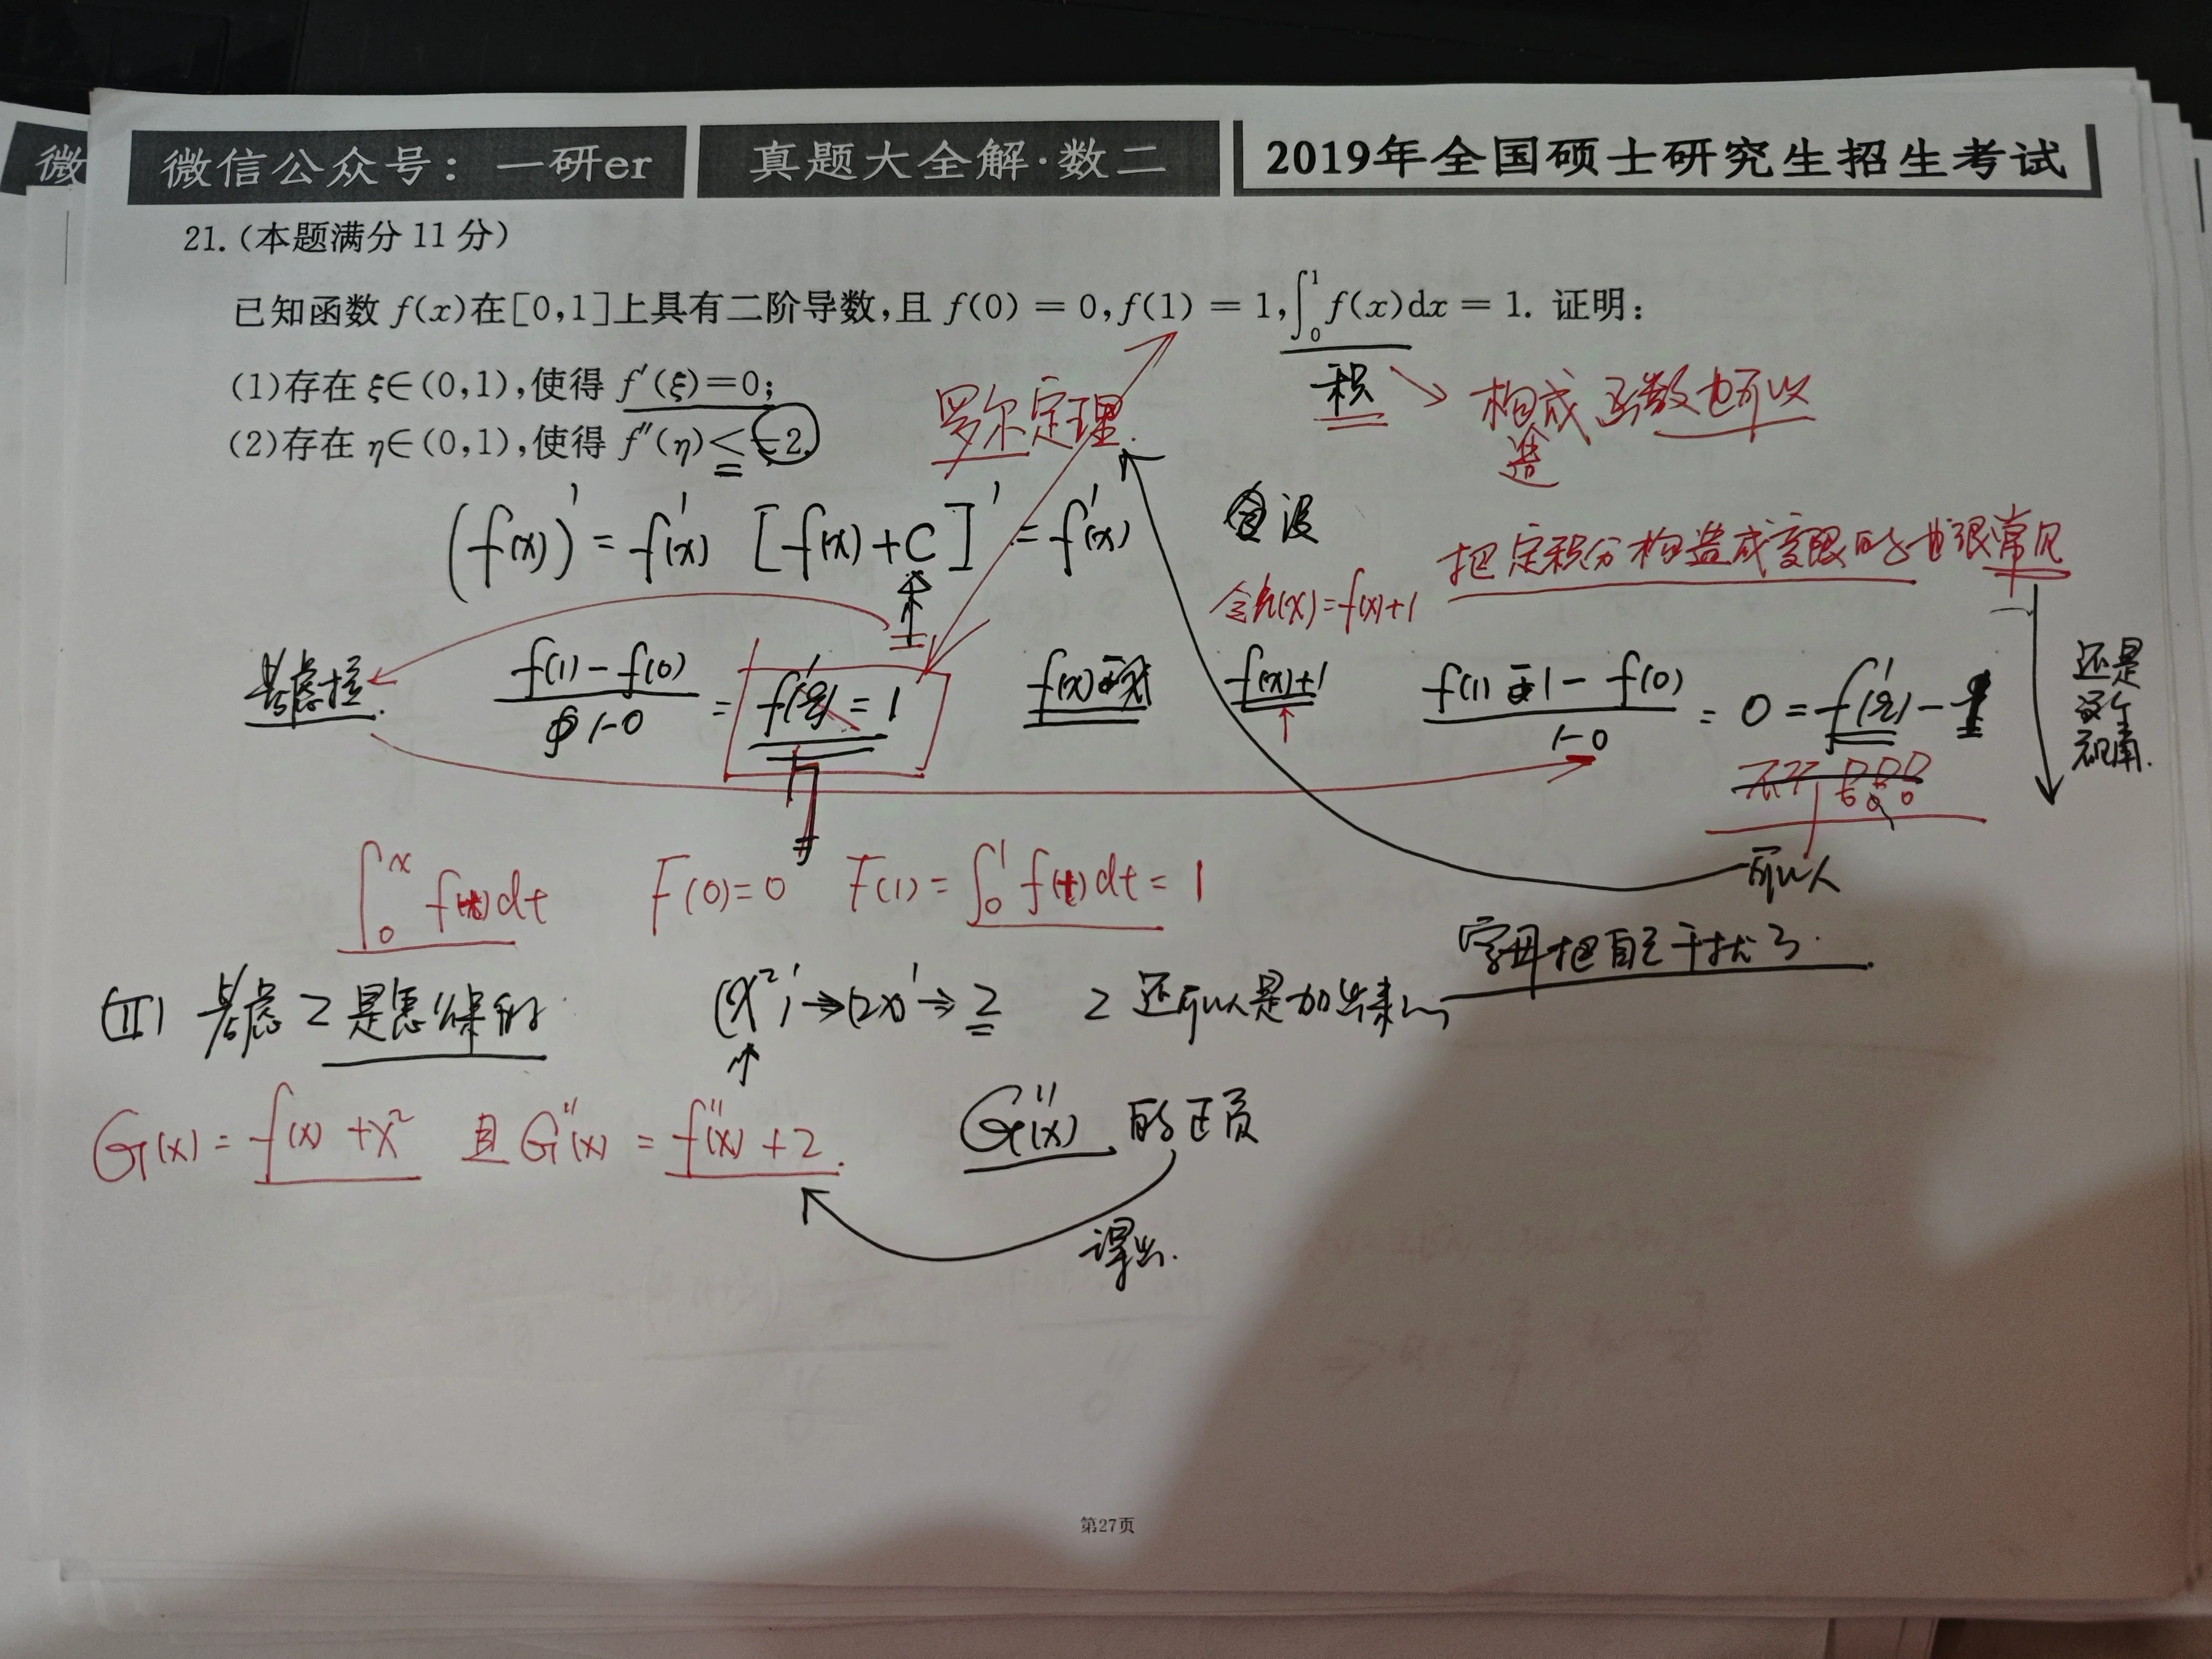 微
微信公众号：一研er 真题大全解·数二 2019年全国硕士研究生招生考试
21.(本题满分11分)
已知函数 f(x)在[0,1]上具有二阶导数,且 f(0) = 0,f(1) = 1,∫₀¹ f(x)dx = 1. 证明:
(1)存在 ξ∈(0,1),使得 f′(ξ)=0;
(2)存在 η∈(0,1),使得 f″(η)< -2.
罗尔定理.
积 → 构成函数也可以
造
(f(x))′ = f′(x) [f(x)+C]′ = f′(x)
设
把定积分构造成变限的也很常见
令h(x)=f(x)+1
还是
这个
视角.
考虑
f(1)-f(0) / 1-0 = f′(ξ) = 1
f(x)
f(x)+1
f(1) -1 - f(0) / 1-0 = 0 = f′(ξ) - 1
可以
∫₀ˣ f(t)dt F(0)=0 F(1)= ∫₀¹ f(t)dt = 1
字母把自己干扰了.
(II) 考虑2是怎么来的 (x²)′→(2x)′→2 2还可以是加出来的
G(x)= f(x)+x² 且 G″(x) = f″(x)+2. G″(x) 的正负
得出.
第27页